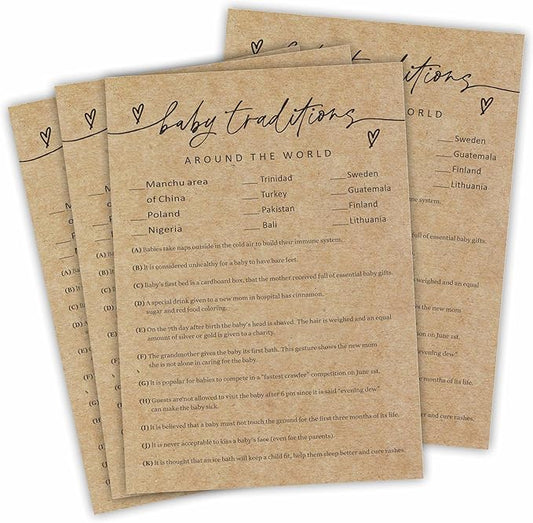 baby traditions
AROUND THE WORLD
___Manchu area
of China
___Poland
___Nigeria
___Trinidad
___Turkey
___Pakistan
___Bali
___Sweden
___Guatemala
___Finland
___Lithuania
(A) Babies take naps outside in the cold air to build their immune system.
(B) It is considered unhealthy for a baby to have bare feet.
(C) Baby's first bed is a cardboard box, that the mother received full of essential baby gifts.
(D) A special drink given to a new mom in hospital has cinnamon.
sugar and red food coloring.
(E) On the 7th day after birth the baby's head is shaved. The hair is weighed and an equal
amount of silver or gold is given to a charity.
(F) The grandmother gives the baby its first bath. This gesture shows the new mom
she is not alone in caring for the baby.
(G) It is popular for babies to compete in a "fastest crawler" competition on June 1st.
(H) Guests are not allowed to visit the baby after 6 pm since it is said "evening dew"
can make the baby sick.
(I) It is believed that a baby must not touch the ground for the first three months of its life.
(J) It is never acceptable to kiss a baby's face (even for the parents).
(K) It is thought that an ice bath will keep a child fit, help them sleep better and cure rashes.
traditions
WORLD
___Sweden
___Guatemala
___Finland
___Lithuania
system.
full of essential baby gifts.
weighed and an equal
new mom
on June 1st.
"evening dew"
months of its life.
and cure rashes.